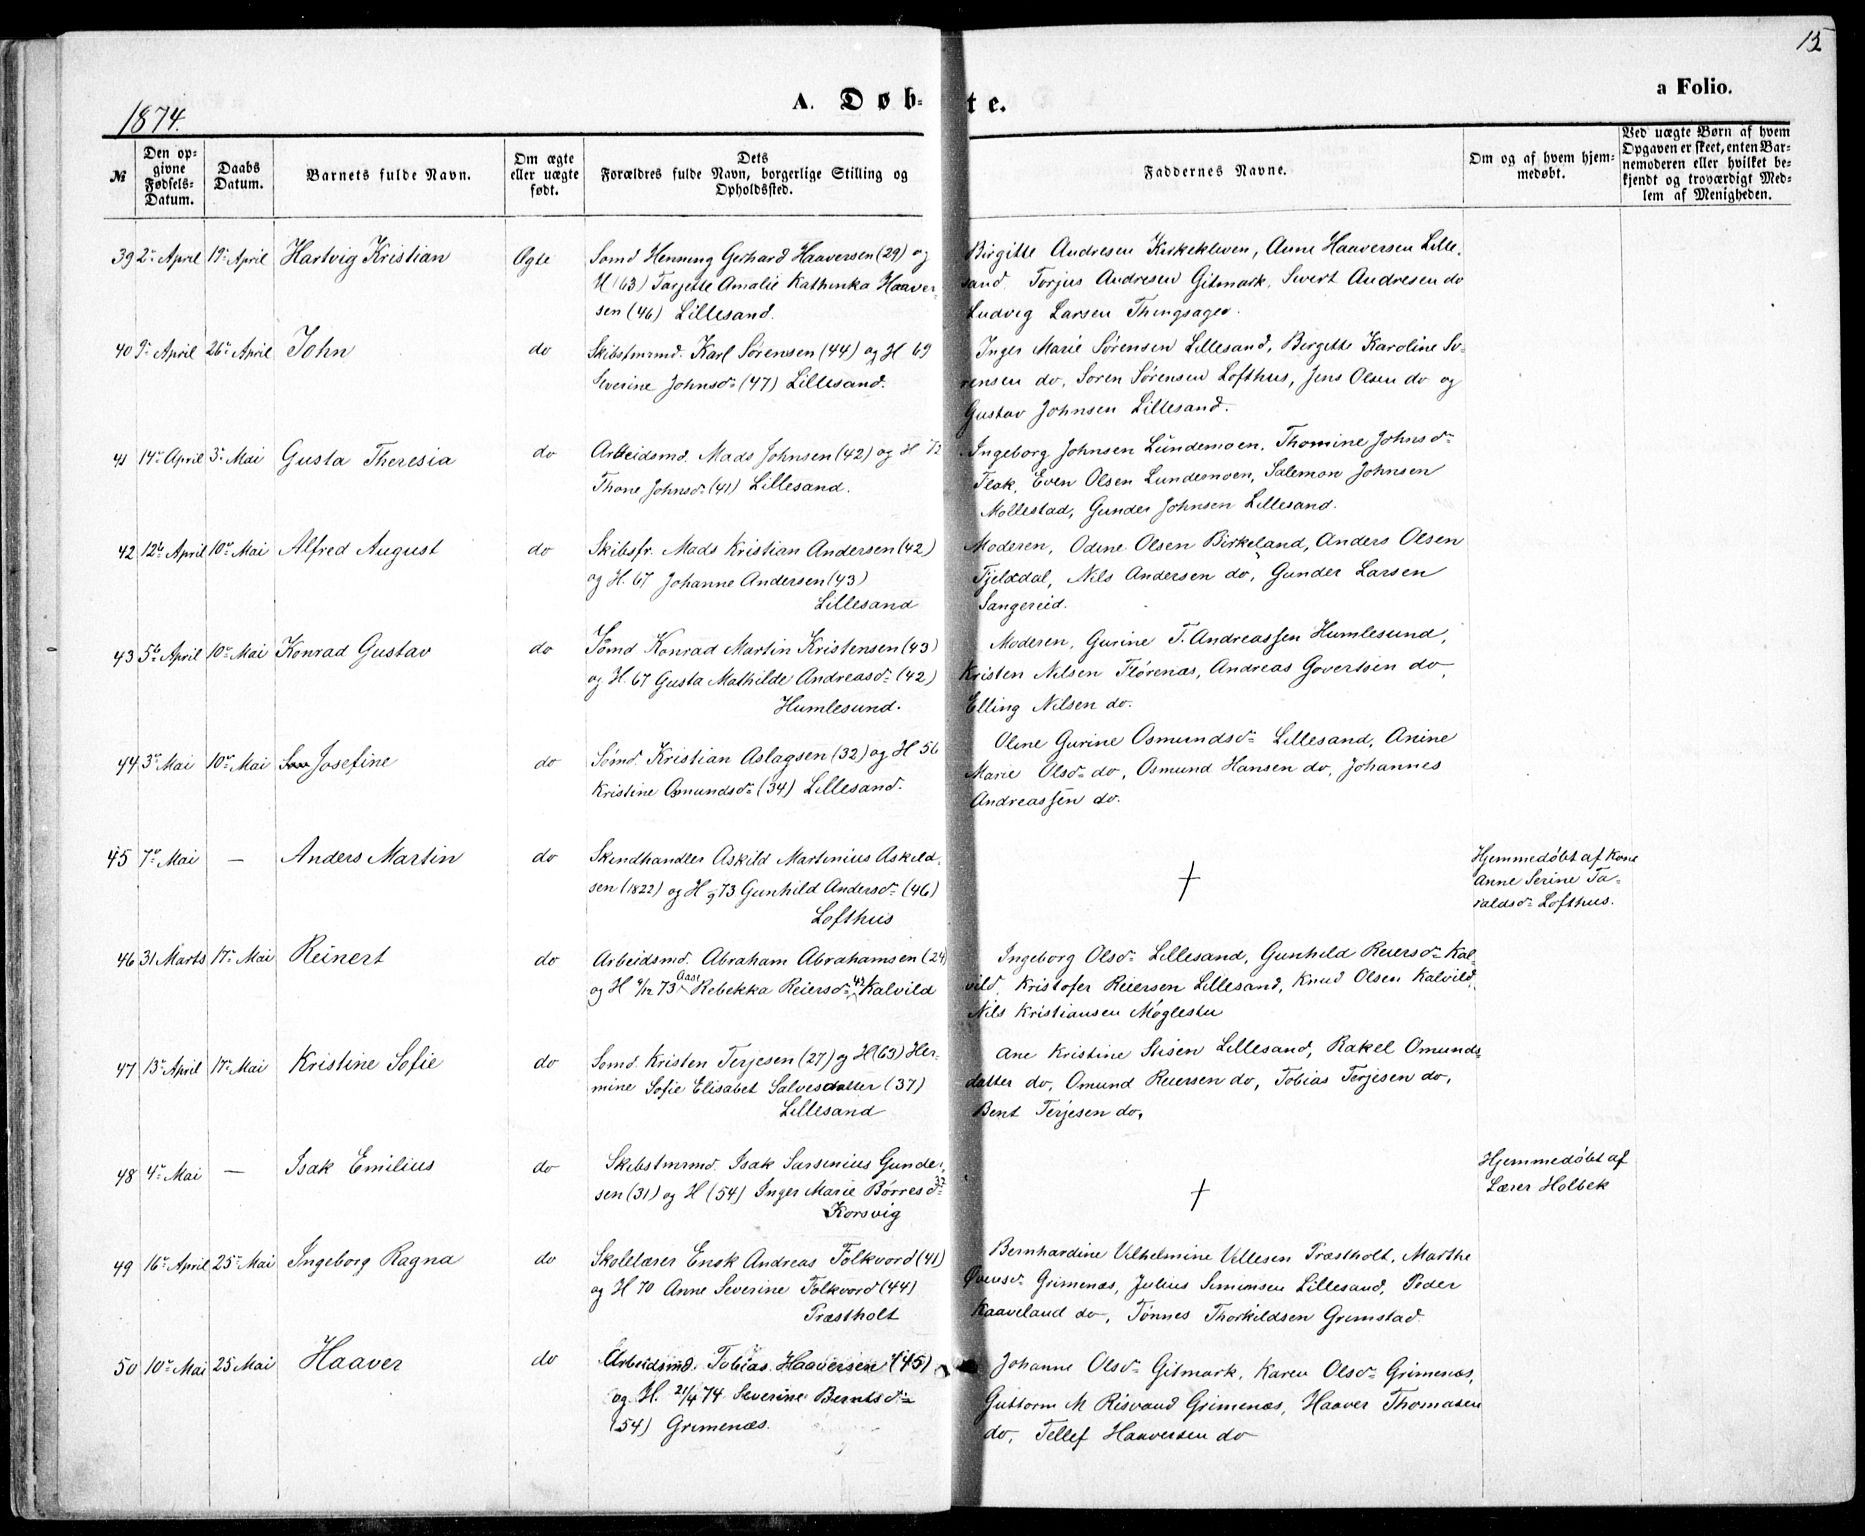 15
1874.
A. Døbte.
a Folio.
№
Den opgivne Fødsels-Datum.
Daabs Datum.
Barnets fulde Navn.
Om ægte eller uægte født.
Dets Forældres fulde Navn, borgerlige Stilling og Opholdssted.
Faddernes Navne.
Om og af hvem hjemmedøbt.
Ved uægte Børn af hvem Opgaven er skeet, enten Barnemoderen eller hvilket bekjendt og troværdigt Medlem af Menigheden.
39 2. April 19. April Hartvig Kristian Ægte
Sømd Henning Gerhard Haaversen (29) og
H (63) Tarjette Amalie Kathinka Haaver-
sen (46) Lillesand.
Birgitte Andresen Kirkekleven, Anne Haaversen Lille-
sand. Torjus Andresen Gitmark, Sivert Andresen do
Ludvig Larsen Thingsager.
40 9. April 26. April John do
Skibstmrmd. Karl Sørensen (44) og H 69
Severine Johnsd. (47) Lillesand.
Inger Marie Sørensen Lillesand, Birgitte Karoline Sø-
rensen do, Søren Sørensen Lofthus, Jens Olsen do og
Gustav Johnsen Lillesand.
41 14. April 3. Mai Gusta Theresia do
Arbeidsmd. Mads Johnsen (42) og H 72
Thone Johnsd. (41) Lillesand.
Ingeborg Johnsen Lundemoen. Thomine Johnsd.
Flak, Even Olsen Lundemoen, Salemon Johnsen
Mollestad, Gunder Johnsen Lillesand.
42 12te April 10. Mai Alfred August do
Skibsfr. Mads Kristian Andersen (42)
og H. 67 Johanne Andersen (43)
Lillesand
Moderen, Odine Olsen Birkeland, Anders Olsen
Fjeldal, Nils Andersen do, Gunder Larsen
Sangereid.
43 5te April 10. Mai Konrad Gustav do
Sømd Konrad Martin Kristensen (43)
og H. 67 Gusta Mathilde Andreasd. (42)
Humlesund.
Moderen, Gurine T. Andreassen Humlesund,
Kristen Nilsen Flørenæs, Andreas Govertsen do,
Elling Nilsen do.
44 3. Mai 10. Mai Josefine do
Sømd. Kristian Aslagsen (32) og H 56
Kristine Omundsd. (34) Lillesand.
Oline Gurine Osmundsd. Lillesand, Anine
Marie Olsd. do, Osmund Hansen do, Johannes
Andreassen do.
45 7. Mai — Anders Martin do
Skindhandler Askild Martinius Askild-
sen (1822) og H 73 Gunhild Andersd. (46)
Lofthus
†
Hjemmedøbt af Kone
Anne Serine Ta-
raldsd. Lofthus.
46 31 Marts 17. Mai Reinert do
Arbeidsmd. Abraham Abrahamsen (24)
og H 4/12 73 Aase Rebekka Reiersd. 42 Kalvild
Ingeborg Olsd. Lillesand, Gunhild Reiersd. Kal-
vild, Kristofer Reiersen Lillesand, Knud Olsen Kalvild,
Nils Kristiansen Møglestu
47 13. April 17. Mai Kristine Sofie do
Sømd Kristen Terjesen (27) og H (63) Her-
mine Sofie Elisabet Salvesdatter (37)
Lillesand
Ane Kristine Stisen Lillesand, Rakel Omunds-
datter do, Omund Reiersen do, Tobias Terjesen do,
Bent Terjesen do,
48 4. Mai — Isak Emilius do
Skibstmrmd. Isak Sarsinius Gunder-
sen (31) og H (54) Inger Marie Børresd. 32
Korsvig
†
Hjemmedøbt af
Lærer Holbek
49 16. April 25. Mai Ingeborg Ragna do
Skolelærer Enok Andreas Folkvord (41)
og H 70 Anne Severine Folkvord (44)
Præstholt
Bernhardine Vilhelmine Vellesen Præstholt, Marthe
Øvensd. Grimenæs, Julius Simonsen Lillesand, Peder
Kaaveland do, Tønnes Thorkildsen Grimstad
50 10. Mai 25 Mai Haaver do
Arbeidsmd. Tobias Haaversen (45)
og H. 21/4 74 Severine Berntsd.
(54) Grimenæs.
Johanne Olsd. Gitmark, Karen Olsd. Grimenæs,
Guttorm M Risvand Grimenæs, Haaver Thomasen
do, Tellef Haaversen do